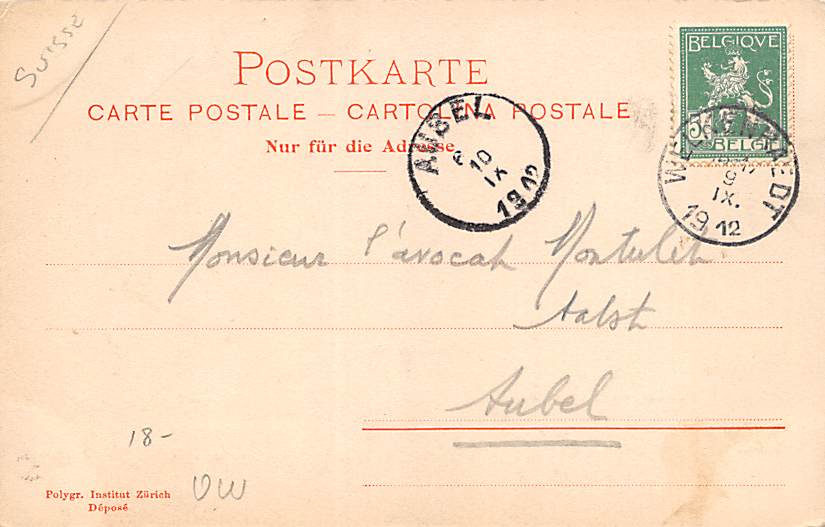 Suisse
POSTKARTE
CARTE POSTALE — CARTOLINA POSTALE
Nur für die Adresse
BELGIQUE
5
BELGIË
WELKENRAEDT
9
IX.
1912
AUBEL
10
IX
1912
Monsieur l'avocat Montulet
Aalst
Aubel
18-
VW
Polygr. Institut Zürich
Déposé